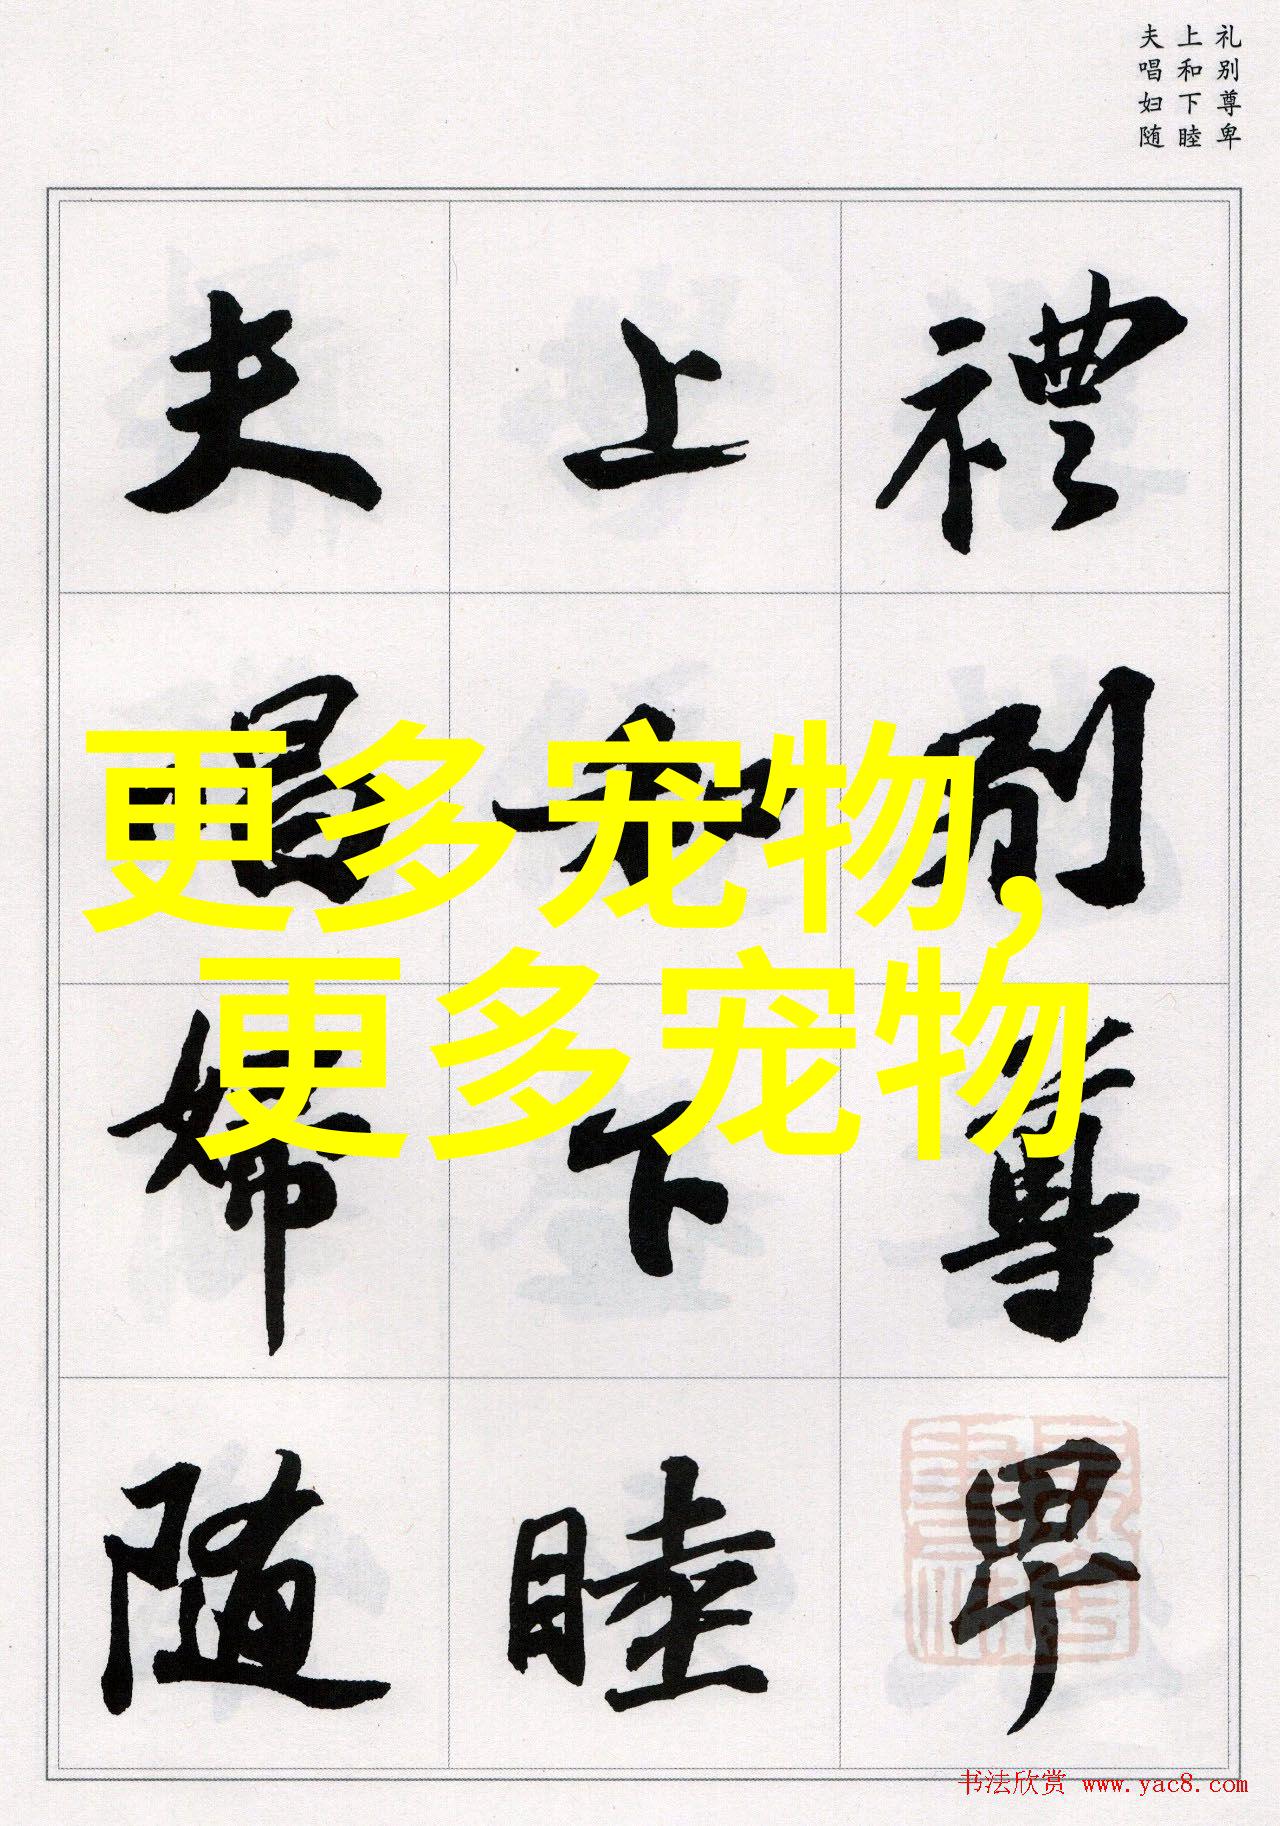 礼别尊卑
上和下睦
夫唱妇随
禮別尊卑
上和下睦
夫唱婦随
更多宠物,
更多宠物
书法欣赏 www.yac8.com